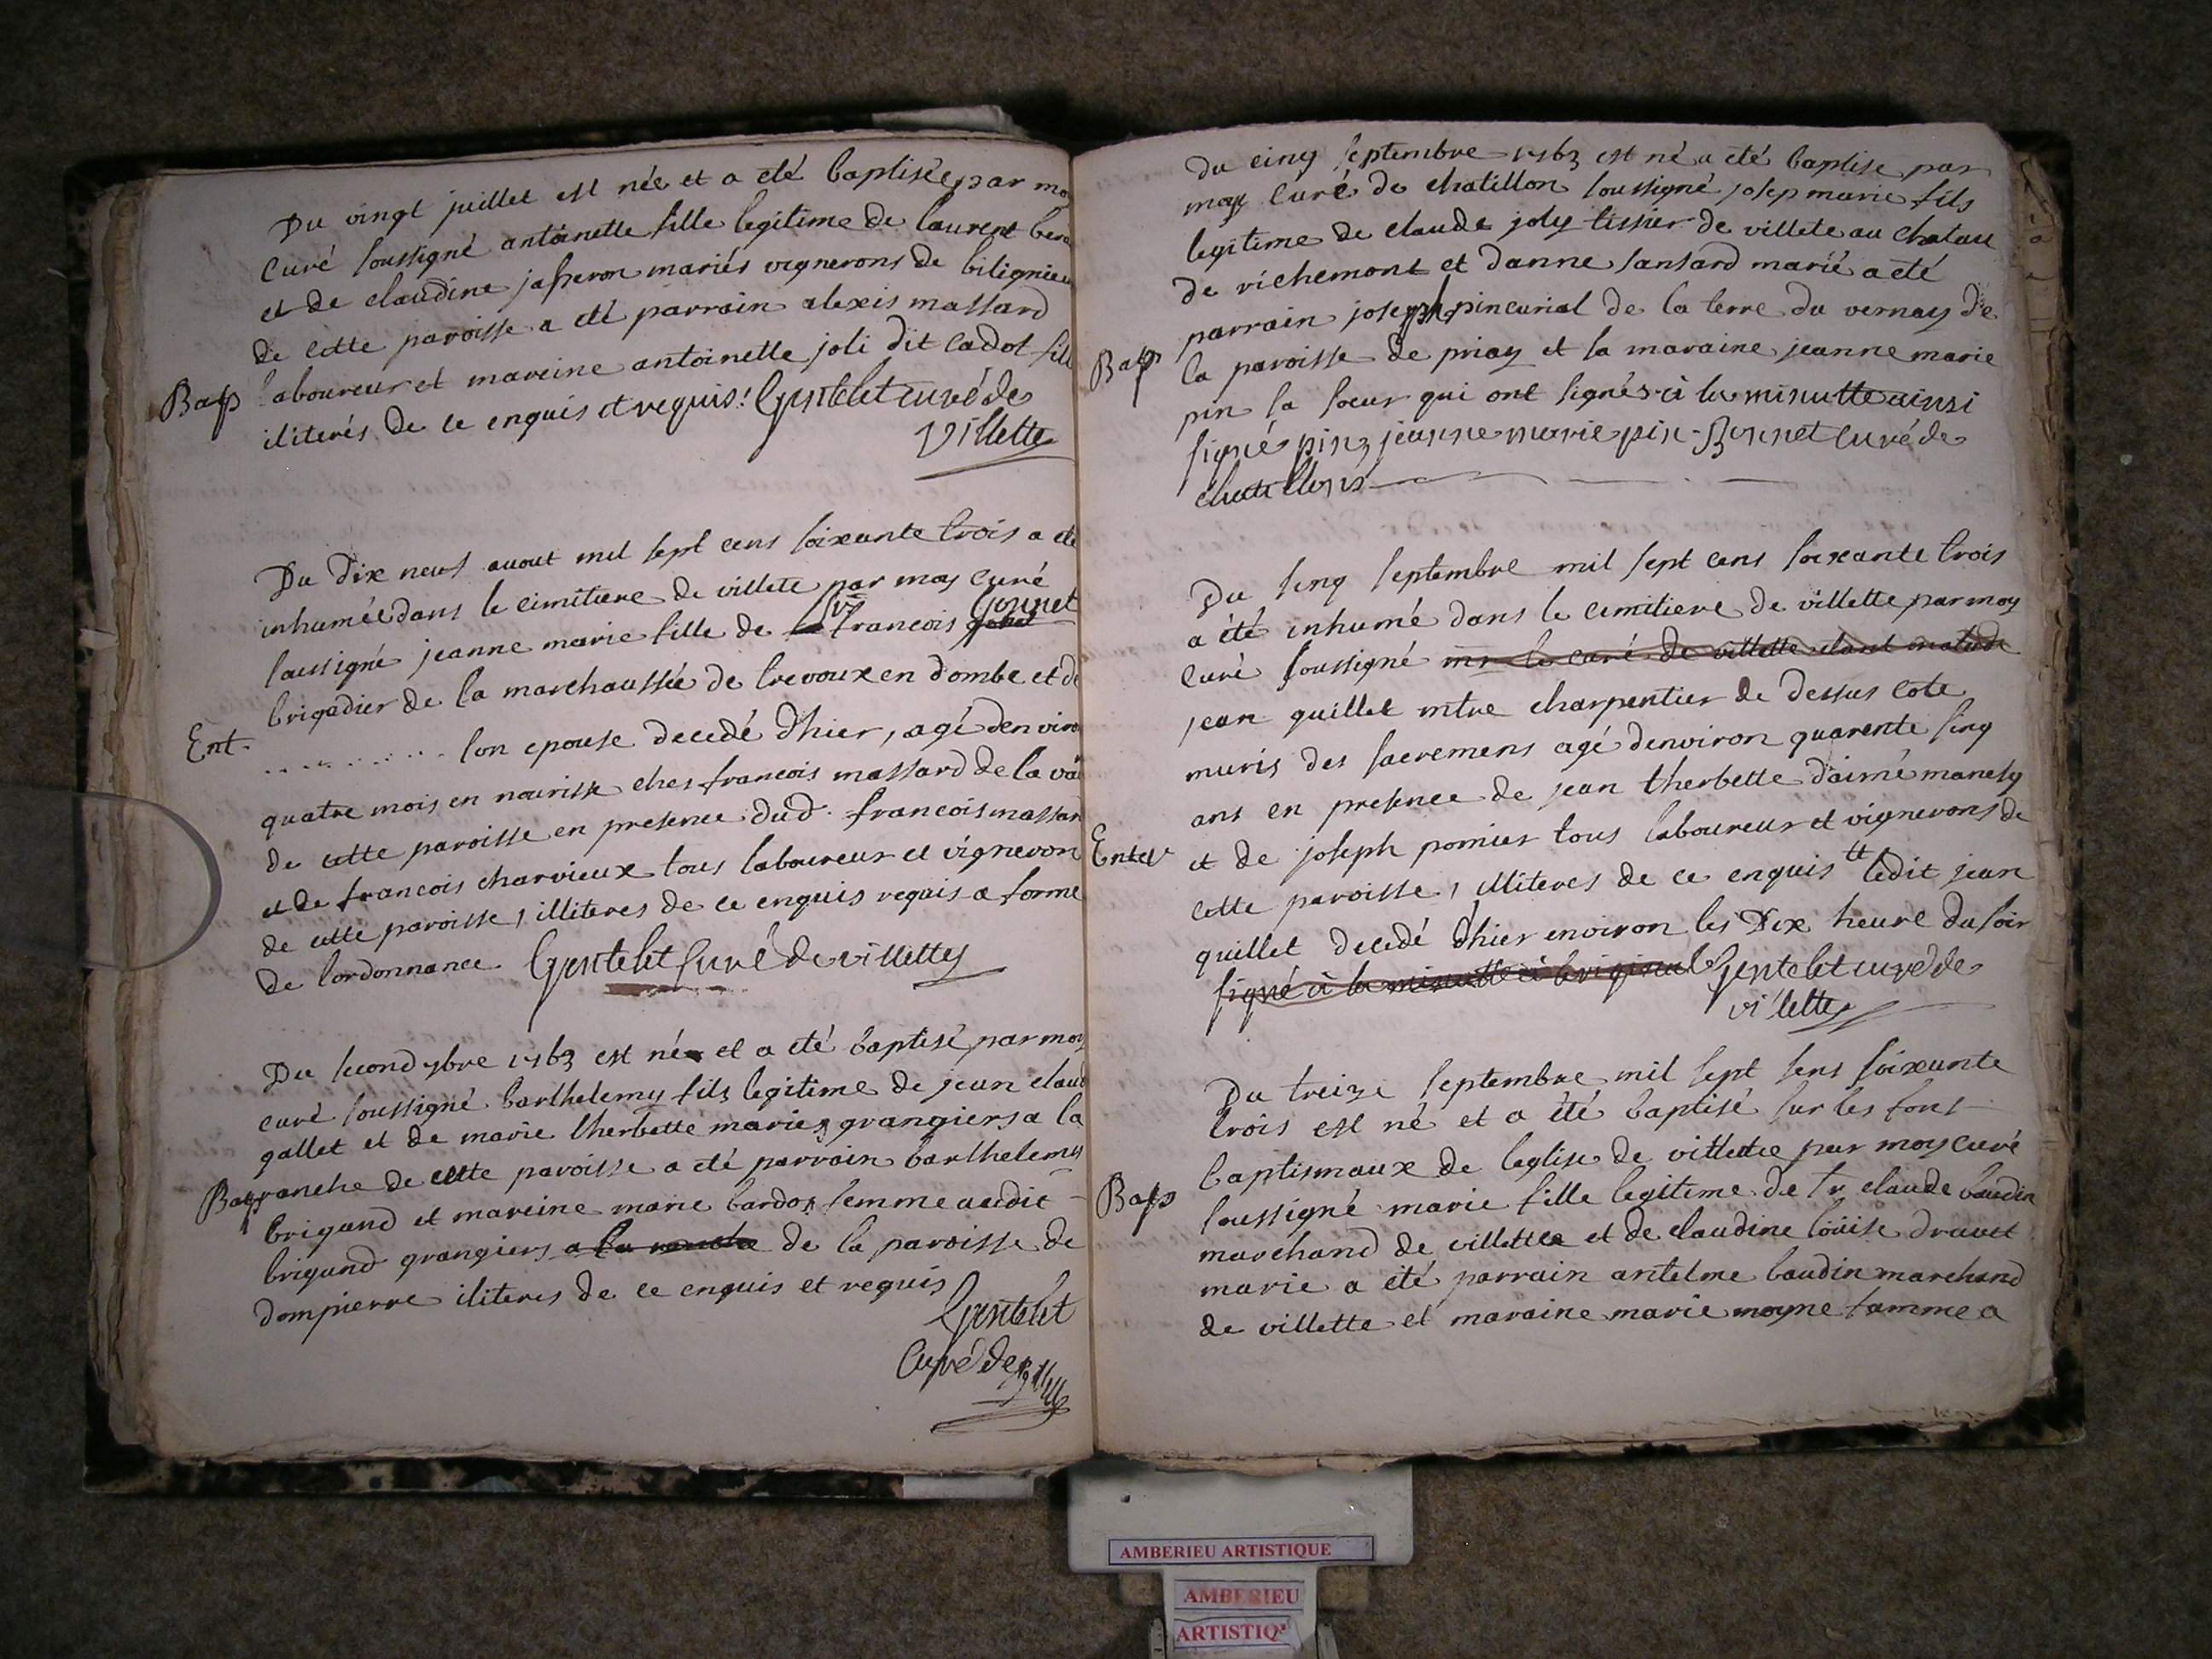 Du vingt juillet est née et a eté baptisée par moy
curé soussigné antoinette fille legitime de laurent
et de claudine jasseron mariés vignerons de bilignieu
de cette paroisse a eté parrain alexis massard
Bap laboureur et mareine antoinette joli dit cadot
iliterés de ce enquis et requis. Gentelet curé de
Villette
Du dix neuf auout mil sept cens soixante trois a eté
inhumée dans le cimitiere de villete par moy curé
soussigné jeanne marie fille de sr francois Gonnet
brigadier de la marchaussée de trevoux en dombe et de
Ent. . . . . . . . . . son epouse decedé dhier, agé denviron
quatre mois en nourisse ches francois massard de la
de cette paroisse en presence dud. francois massard
et de francois charvieux tous laboureur et vigneron
de cette paroisse, illiteres de ce enquis requis a forme
de lordonnance Gentelet Curé de villette
Du second 7bre 1763 est né et a eté baptisé par moy
curé soussigné barthelemy fils legitime de jean claude
gallet et de marie therbette mariez grangiers a la
Bap ranche de cette paroisse a eté parrain barthelemy
brigand et mareine marie bardon femme audit
brigand grangiers a la ranche de la paroisse de
dompierre iliteres de ce enquis et requis
Gentelet
Curé de Villette
Du cinq septembre 1763 est né a eté baptise par
moy curé de chatillon soussigné josep marie fils
legitime de claude joly tissier de villete au chatau
de richemont et danne sansard marié a eté
parrain joseph pin curial de la terre du vernay de
Bap la paroisse de priay et la maraine jeanne marie
pin sa soeur qui ont signés à la minutte ainsi
signé pin, jeanne marie pin. Bonnet curé de
chatillon
Du sinq septembre mil sept cens soixante trois
a été inhumé dans le cemitiere de villette par moy
curé soussigné mr le curé de villette etant malade
jean quillet mtre charpentier de dessus cote
muris des sacremens agé denviron quarente sinq
ans en presence de jean therbette daimé manesy
Enter et de joseph pomier tous laboureur et vignerons de
cette paroisse, illiteres de ce enquis tt ledit jean
quillet decedé dhier environ les Dix heure du soir
signé à la minutte à loriginal Gentelet curé de
villette
Du treize septembre mil sept sens soixante
trois est né et a été baptisé sur les fons
baptismaux de leglise de villette par moy curé
Bap soussigné marie fille legitime de sr claude baudin
marchand de villette et de claudine loüise druet
marie a eté parrain antelme baudin marchand
de villette et maraine marie moyne famme a
AMBERIEU ARTISTIQUE
AMBERIEU
ARTISTIQ